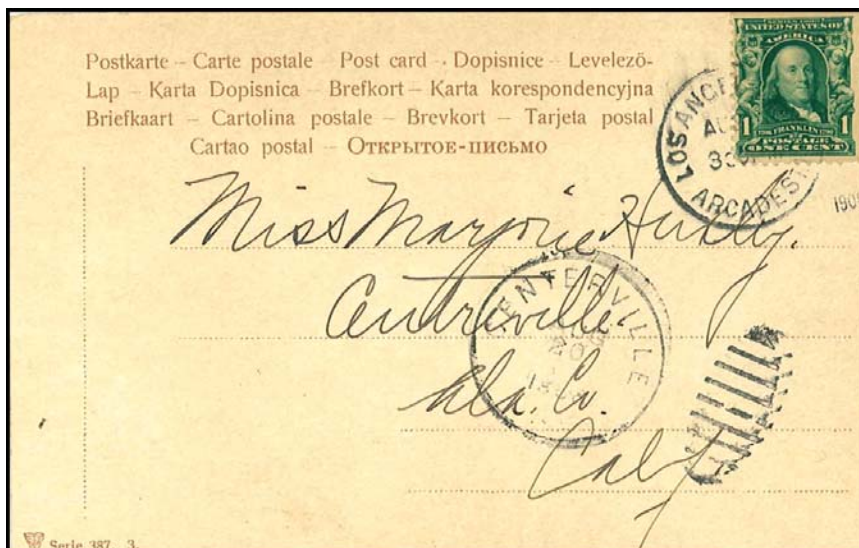 Postkarte – Carte postale – Post card – Dopisnice – Levelező-
Lap – Karta Dopisnica – Brefkort – Karta korespondencyjna
Briefkaart – Cartolina postale – Brevkort – Tarjeta postal
Cartao postal – Открытое-письмо
UNITED STATES OF
AMERICA
1 FRANKLIN 1
POSTAGE
ONE CENT
LOS ANGE
AU
ARCADE ST
Miss Marjorie
Centreville
Ala. Co.
Calif
ENTERVILLE
Serie 387 3.